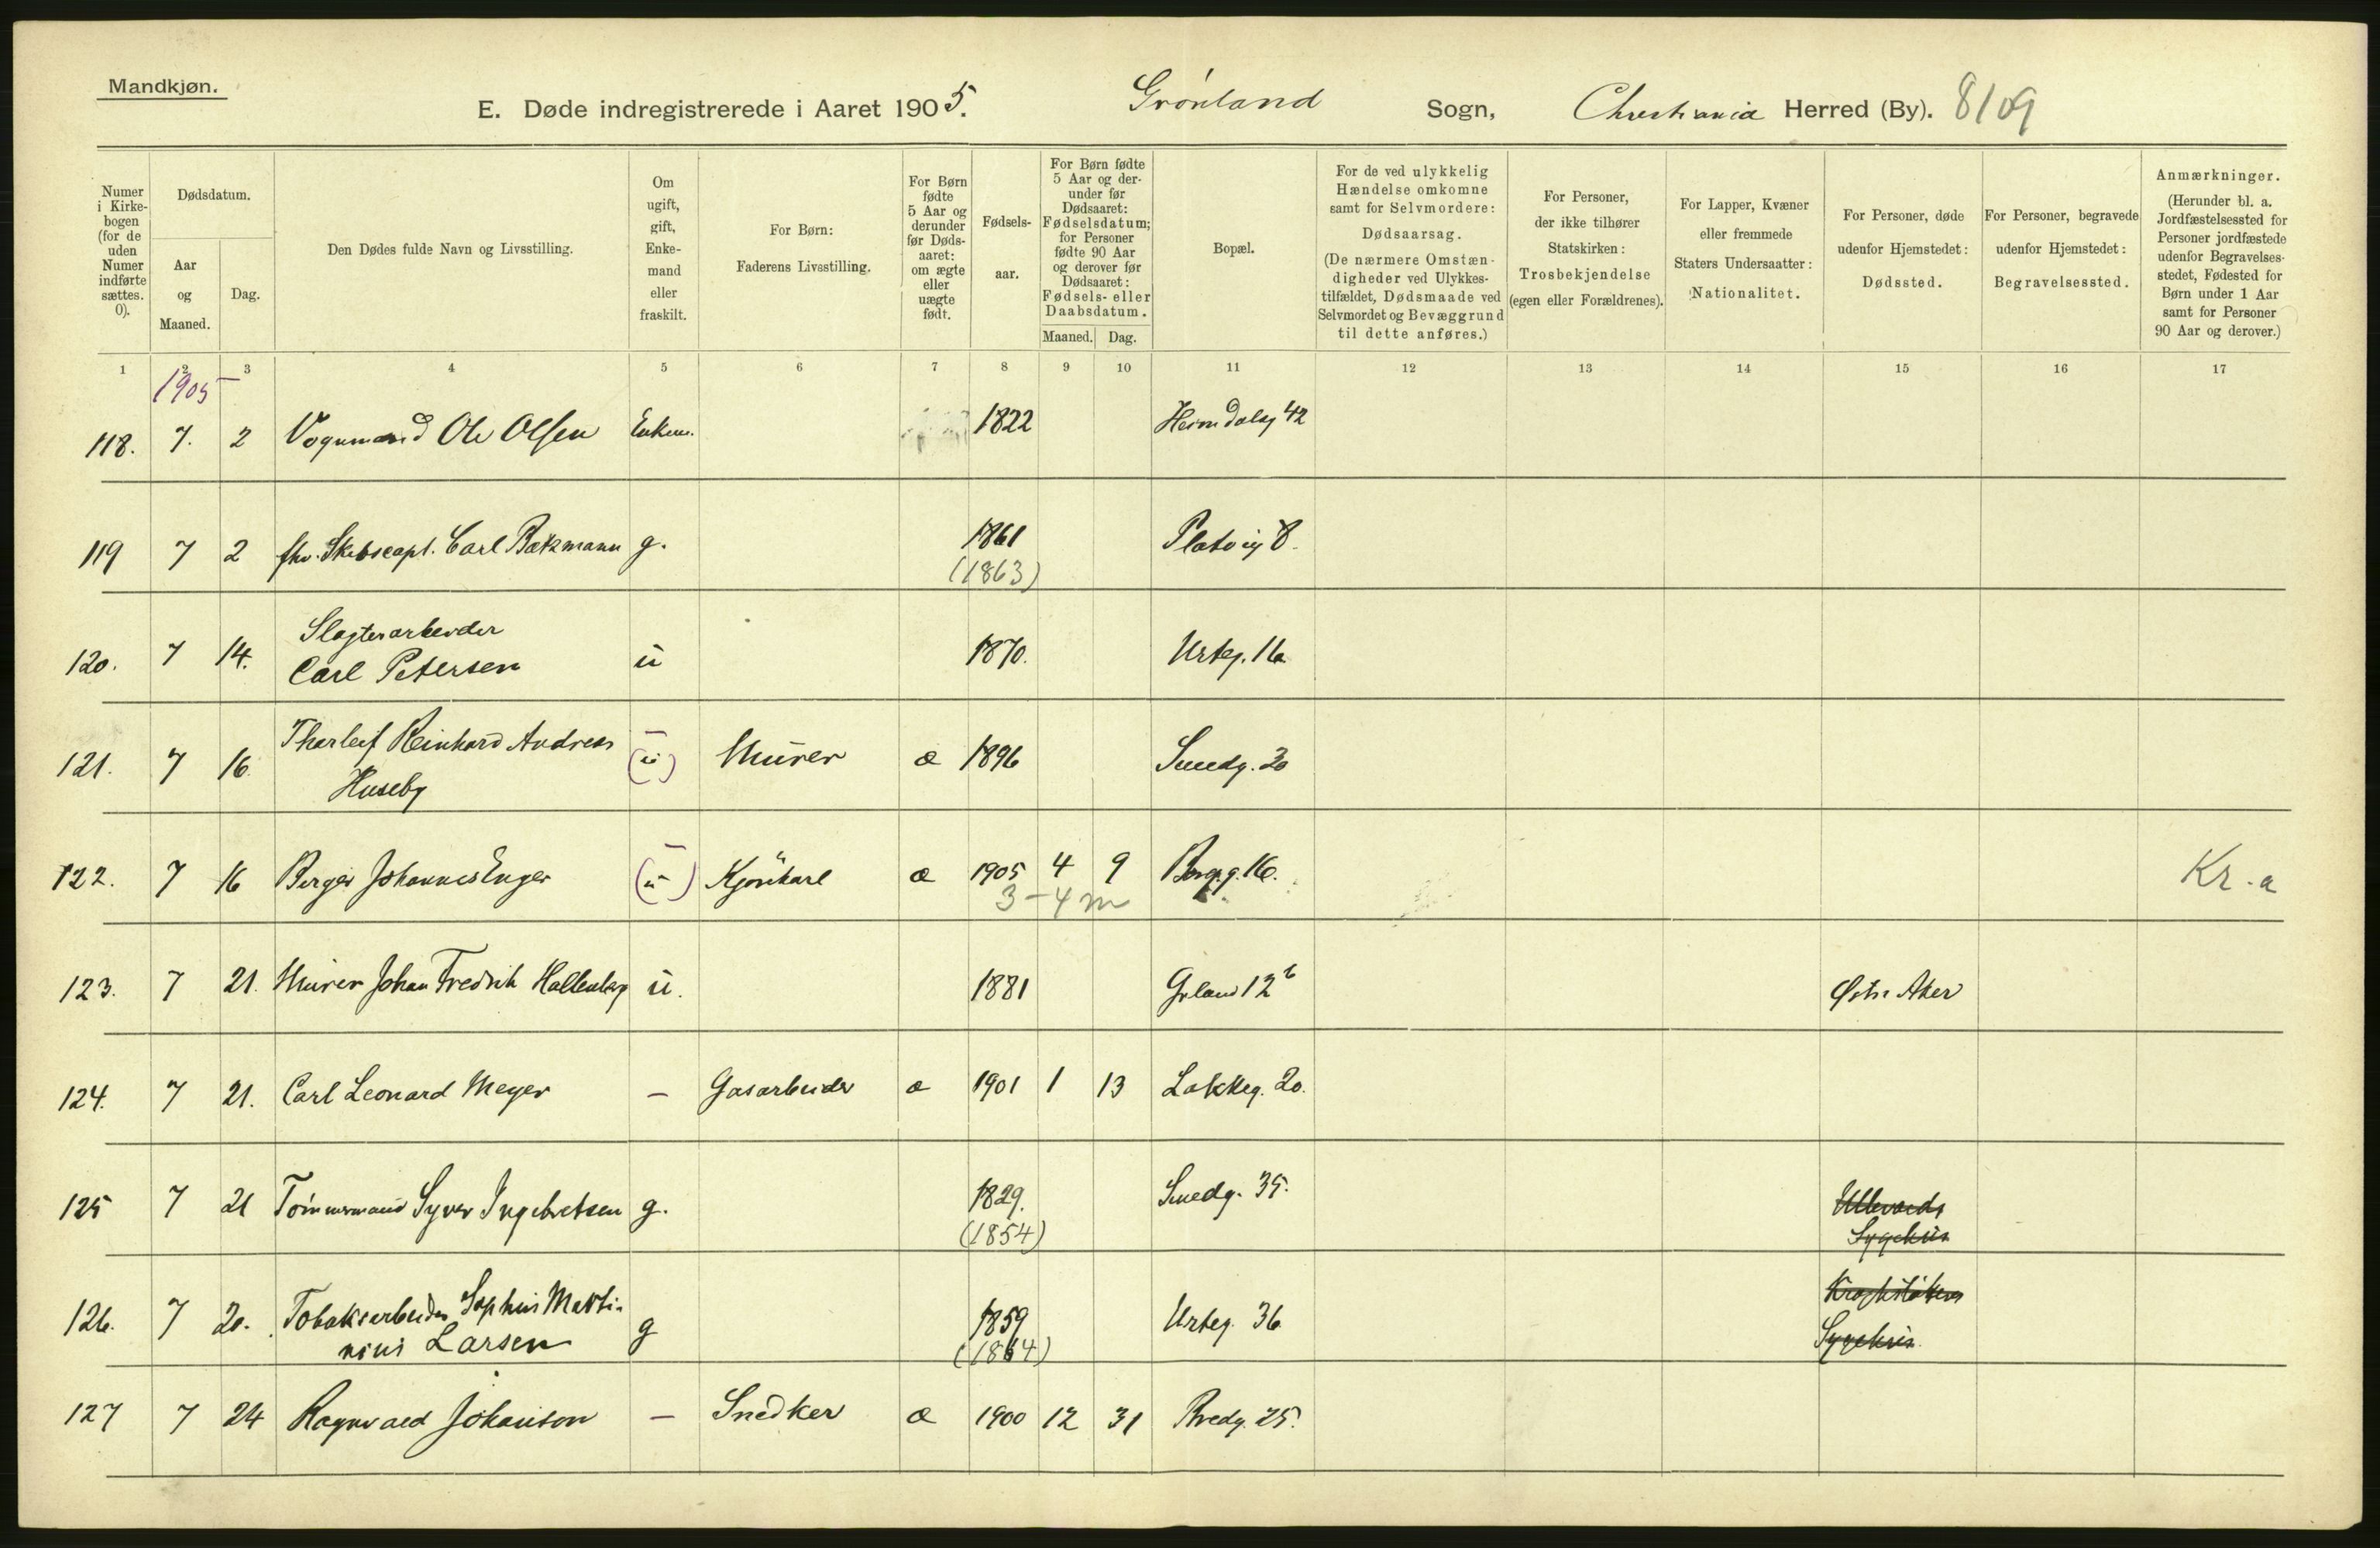 Mandkjøn.
E. Døde indregistrerede i Aaret 1905. Grønland Sogn, Christiania Herred (By). 8109
Numer i Kirkebogen (for de uden Numer indførte sættes. 0).
Dødsdatum.
Aar og Maaned.
Dag.
Den Dødes fulde Navn og Livsstilling.
Om ugift, gift, Enkemand eller fraskilt.
For Børn: Faderens Livsstilling.
For Børn fødte 5 Aar og derunder før Dødsaaret: om ægte eller uægte født.
Fødselsaar.
For Børn fødte 5 Aar og derunder før Dødsaaret: Fødselsdatum; for Personer fødte 90 Aar og derover før Dødsaaret: Fødsels- eller Daabsdatum.
Maaned. Dag.
Bopæl.
For de ved ulykkelig Hændelse omkomne samt for Selvmordere: Dødsaarsag. (De nærmere Omstændigheder ved Ulykkestilfældet, Dødsmaade ved Selvmordet og Bevæggrund til dette anføres.)
For Personer, der ikke tilhører Statskirken: Trosbekjendelse (egen eller Forældrenes).
For Lapper, Kvæner eller fremmede Staters Undersaatter: Nationalitet.
For Personer, døde udenfor Hjemstedet: Dødssted.
For Personer, begravede udenfor Hjemstedet: Begravelsessted.
Anmærkninger. (Herunder bl. a. Jordfæstelsessted for Personer jordfæstede udenfor Begravelsesstedet, Fødested for Børn under 1 Aar samt for Personer 90 Aar og derover.)
1 2 3 4 5 6 7 8 9 10 11 12 13 14 15 16 17
1905
118. 7. 2 Vognmand Ole Olsen Enkem. 1822 Heimdalsg 42
119 7 2 fhv. Skibscapt. Carl Bakmann g. 1861 Platoug 8.
(1863)
120. 7 14. Slagterarbeider
Carl Petersen u 1870. Urteg. 16
121. 7 16. Thorleif Reinhard Andreas
Huseby (u) — Murer æ 1896 Smedg. 30
122. 7 16 Birger Johannes Enger (u) — Kjørekarl æ 1905 4 9 Borgg. 16. Kr.a
3-4 m
123. 7 21. Murer Johan Fredrik Hallenberg u. 1881 Grland 12 b Østre Aker
124. 7 21. Carl Leonard Meyer — Gasarbeider æ 1901 1 13 Lakkeg. 20.
125 7 21 Tømmermand Syver Ingebretsen g. 1829. Smedg. 35. Ullevaals
(1854) Sygehus
126. 7 20. Tobaksarbeider Sophus Marti-
nius Larsen g 1859 Urteg. 36 Krohstøtten
(1864) Sygehus.
127 7 24 Ragnvald Johanson — Snedker æ 1900 12 31 Bredg. 25.